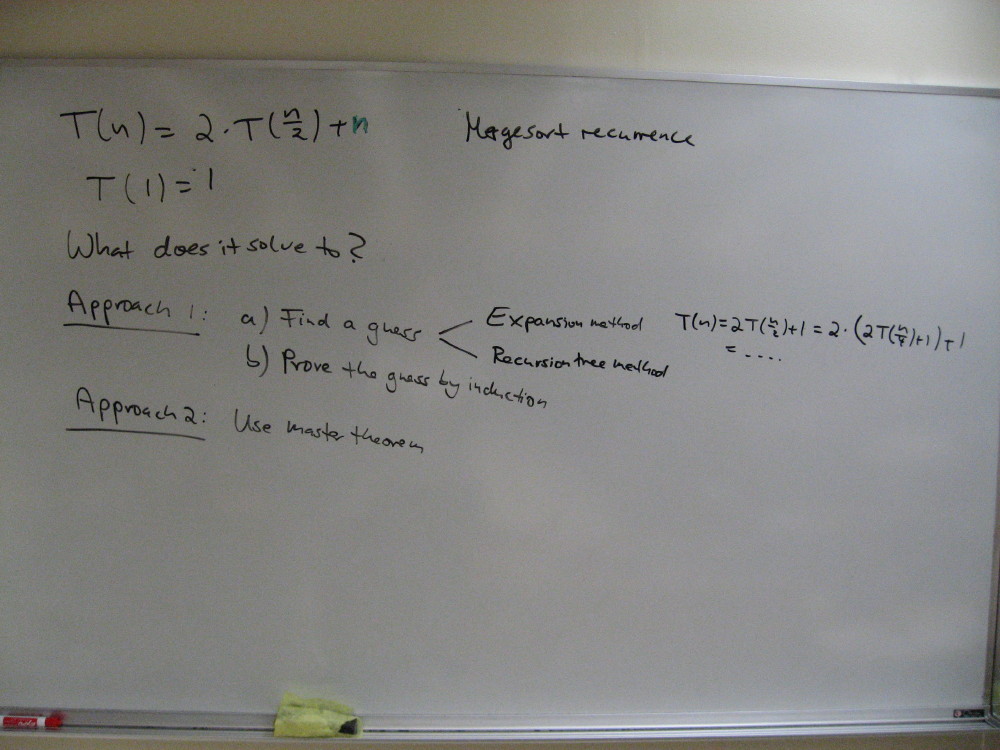 T(n) = 2·T(n/2) + n
Mergesort recurrence
T(1) = 1
What does it solve to?
Approach 1: a) Find a guess
Expansion method
T(n) = 2T(n/2)+1 = 2·(2T(n/4)+1)+1
= ....
Recursion tree method
b) Prove the guess by induction
Approach 2: Use master theorem